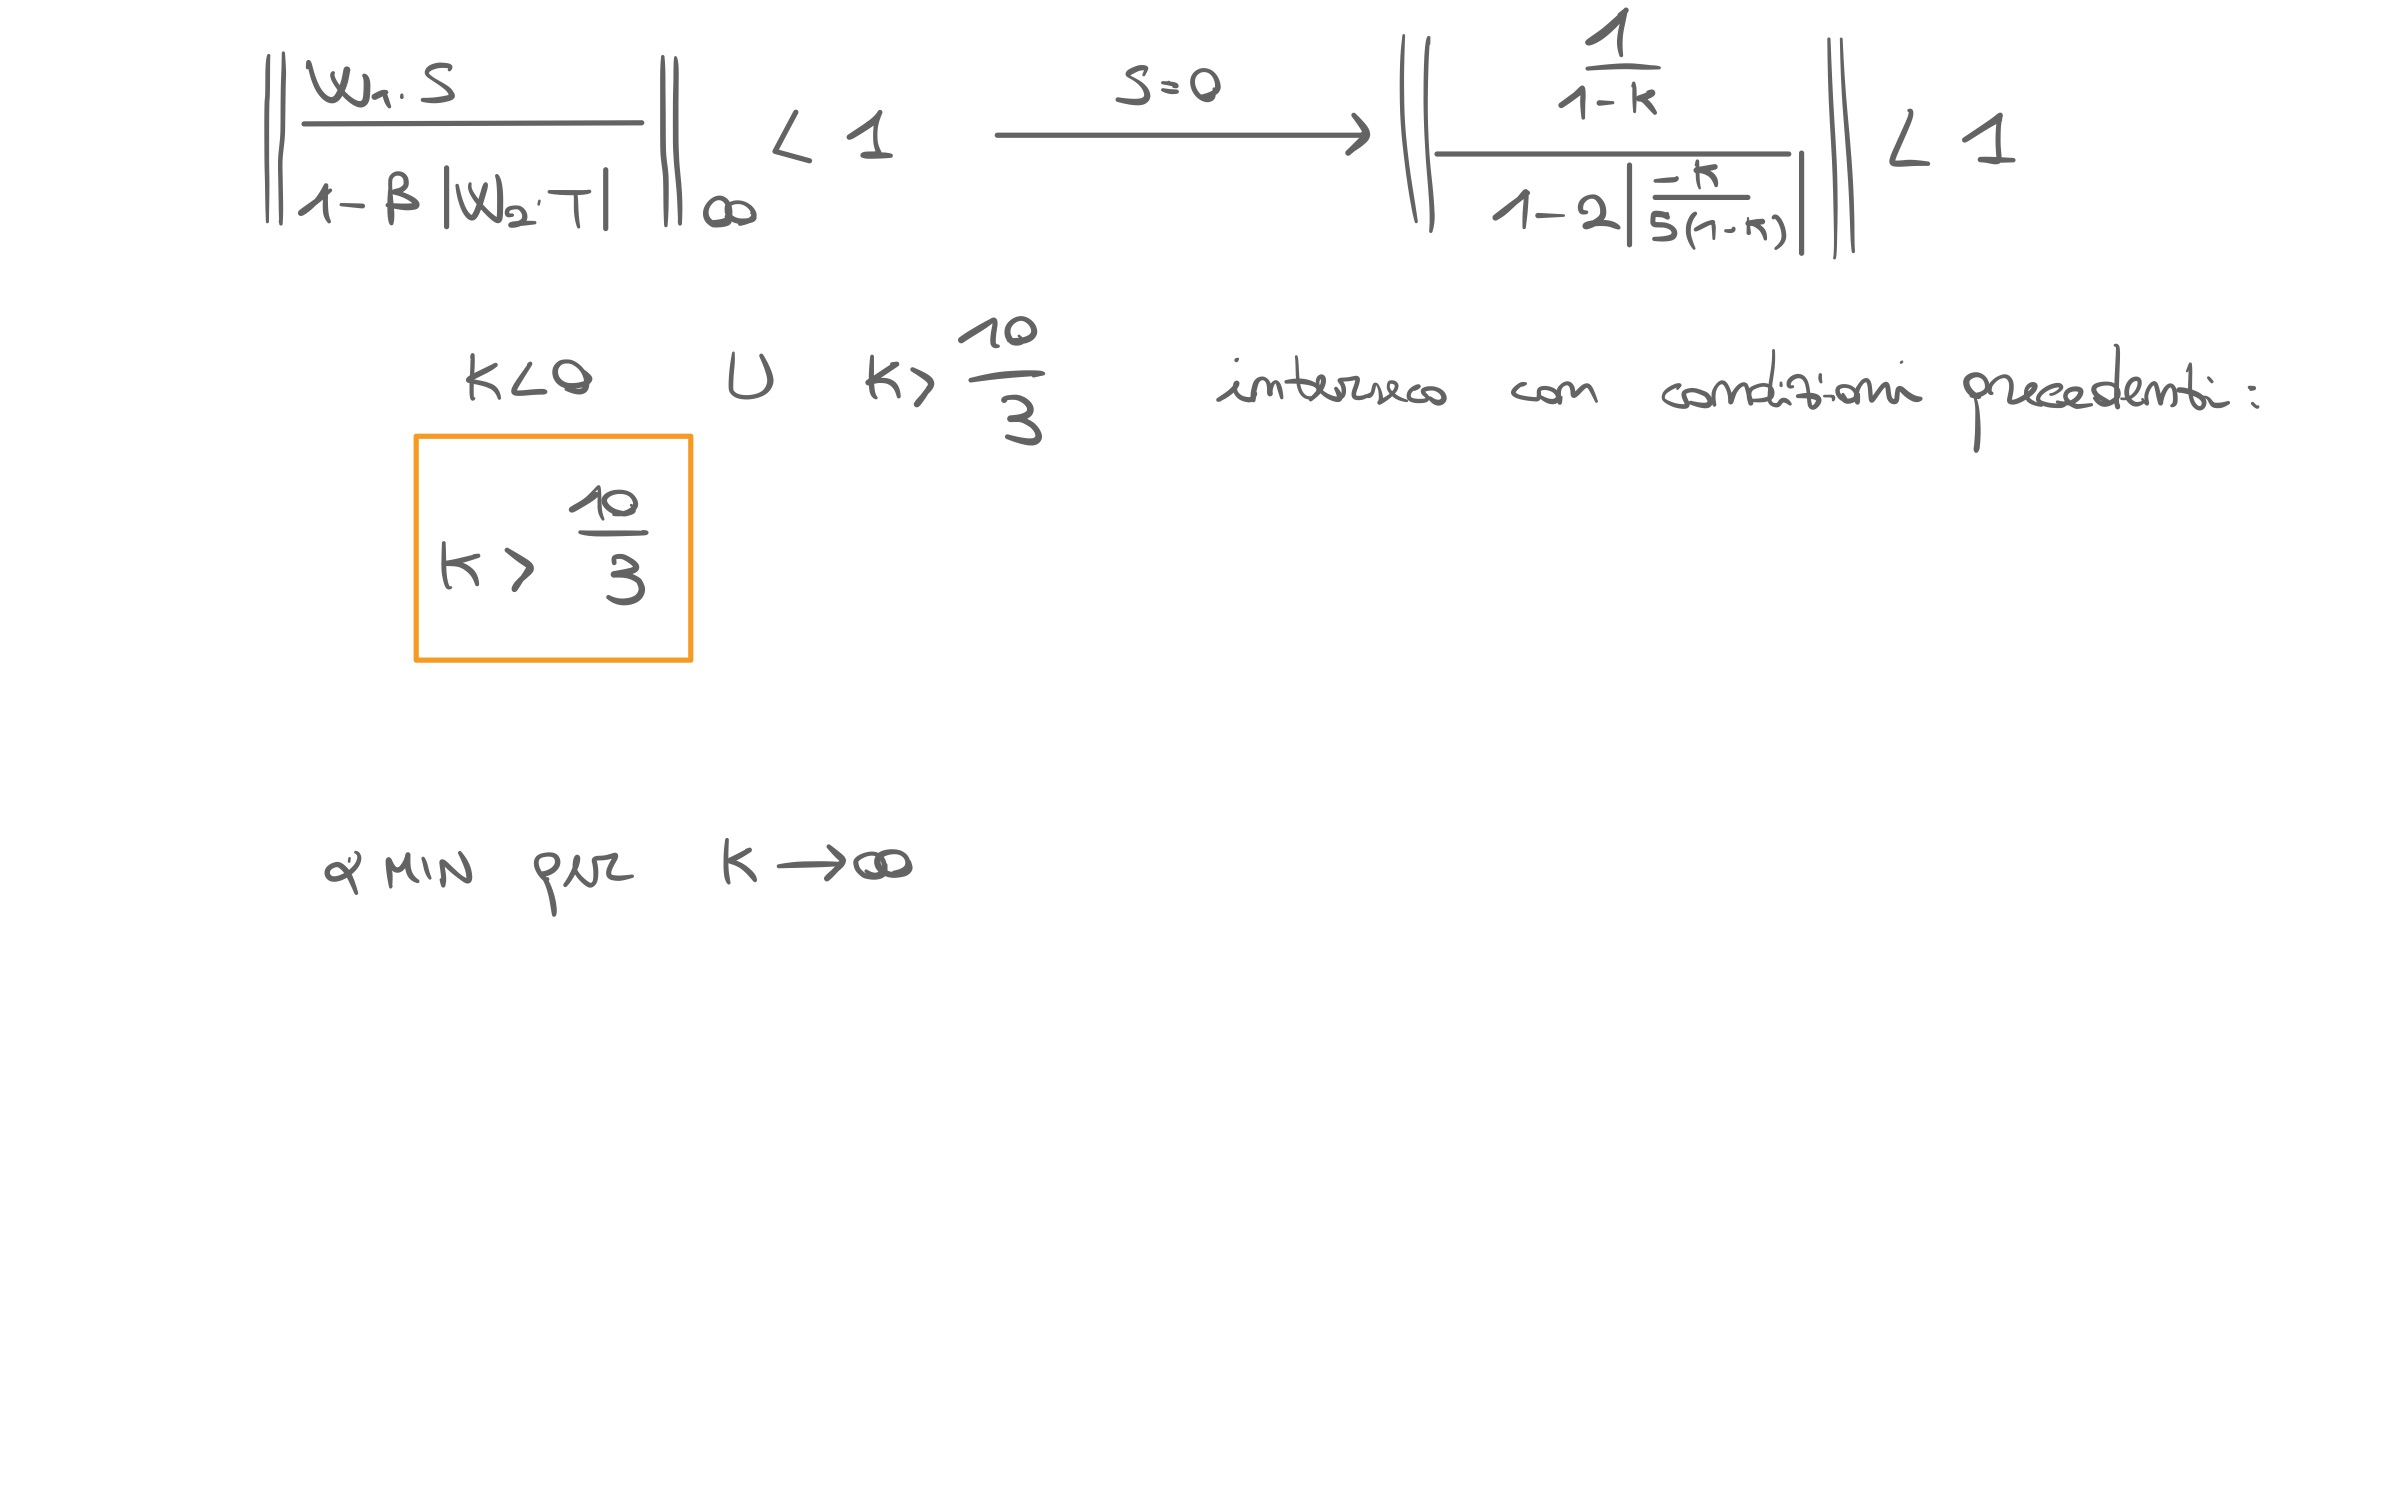 || W₁·S / (1-β|W₂·T|) ||∞ < 1 —s=0→ || (1/(1-k)) / (1-2|-k / 5(1-k)|) || < 1
k<0 ∪ k> 10/3 interseco con condizioni precedenti:
k > 10/3
min per k→∞